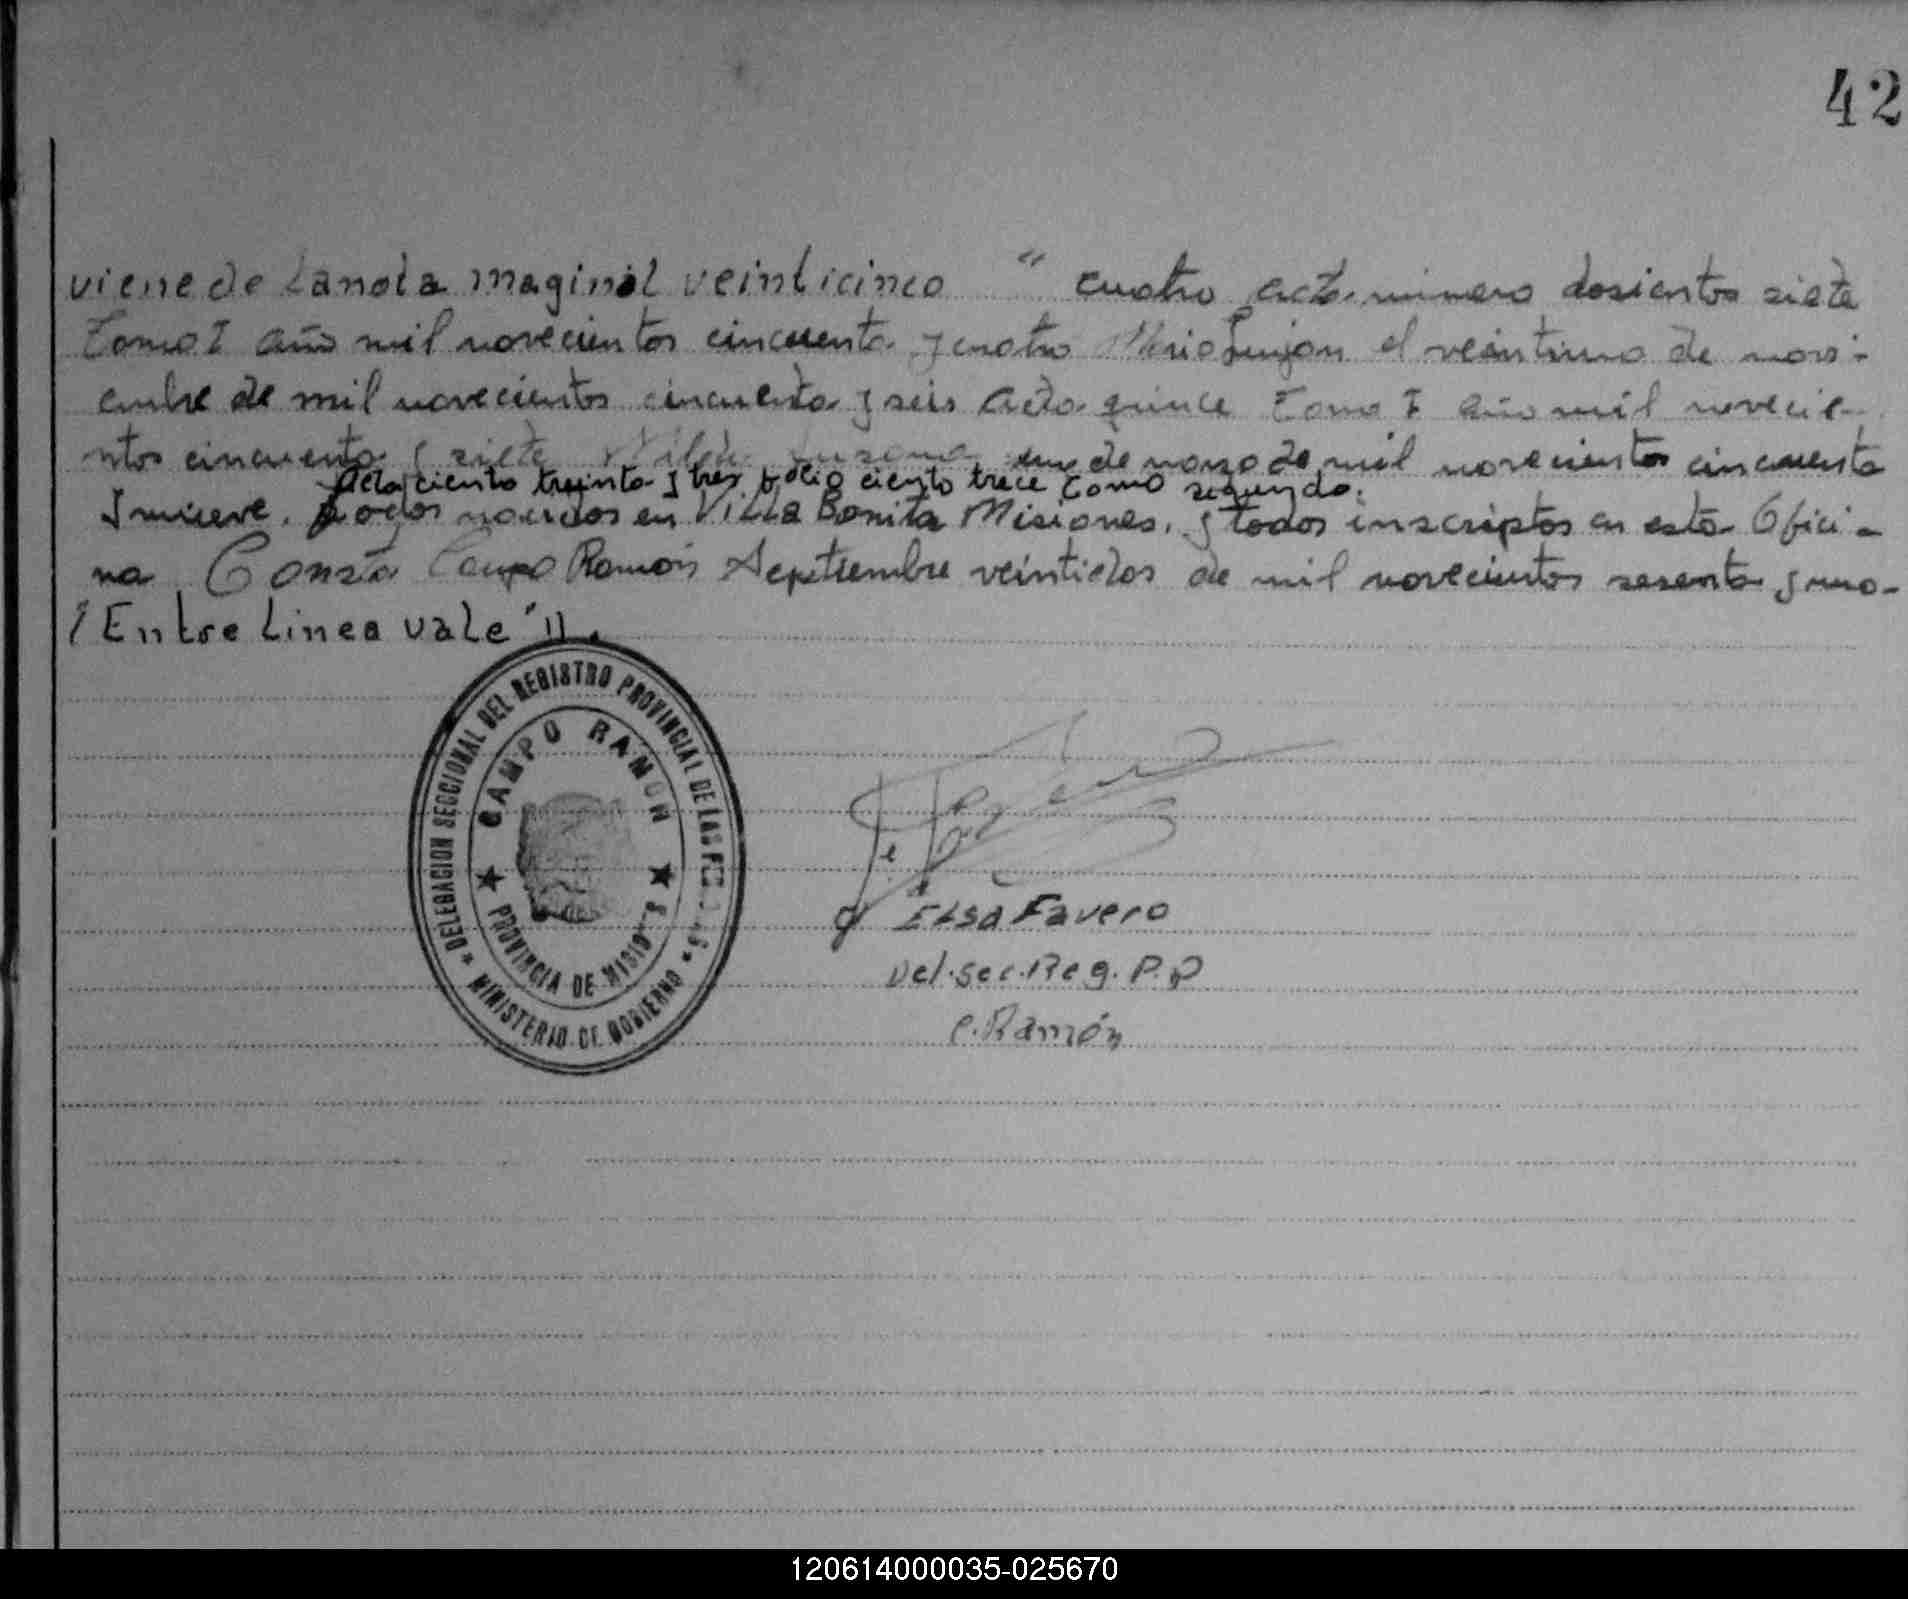 42
viene de La nota maginal veinticinco " cuatro acta número dosientos siete
Tomo I año mil novecientos cincuenta y cuatro Maria Lujan el veintiuno de novi-
embre de mil novecientos cincuenta y seis acta quince Tomo I año mil novecie-
ntos cincuenta y siete Susana de marzo de mil novecientos cincuenta
Acta ciento treinta y tres folio ciento trece tomo segundo.
y nueve. todos nacidos en Villa Bonita Misiones. y todos inscriptos en esta Ofici-
na Consta Campo Ramón Septiembre veintidos de mil novecientos sesenta y uno-
"Entre Linea vale".
DELEGACION SECCIONAL DEL REGISTRO PROVINCIAL DE LAS
CAMPO RAMON
PROVINCIA DE MISIONES
MINISTERIO DE GOBIERNO
Elsa Favero
Del. Sec. Reg. P. P
C. Ramón
120614000035-025670